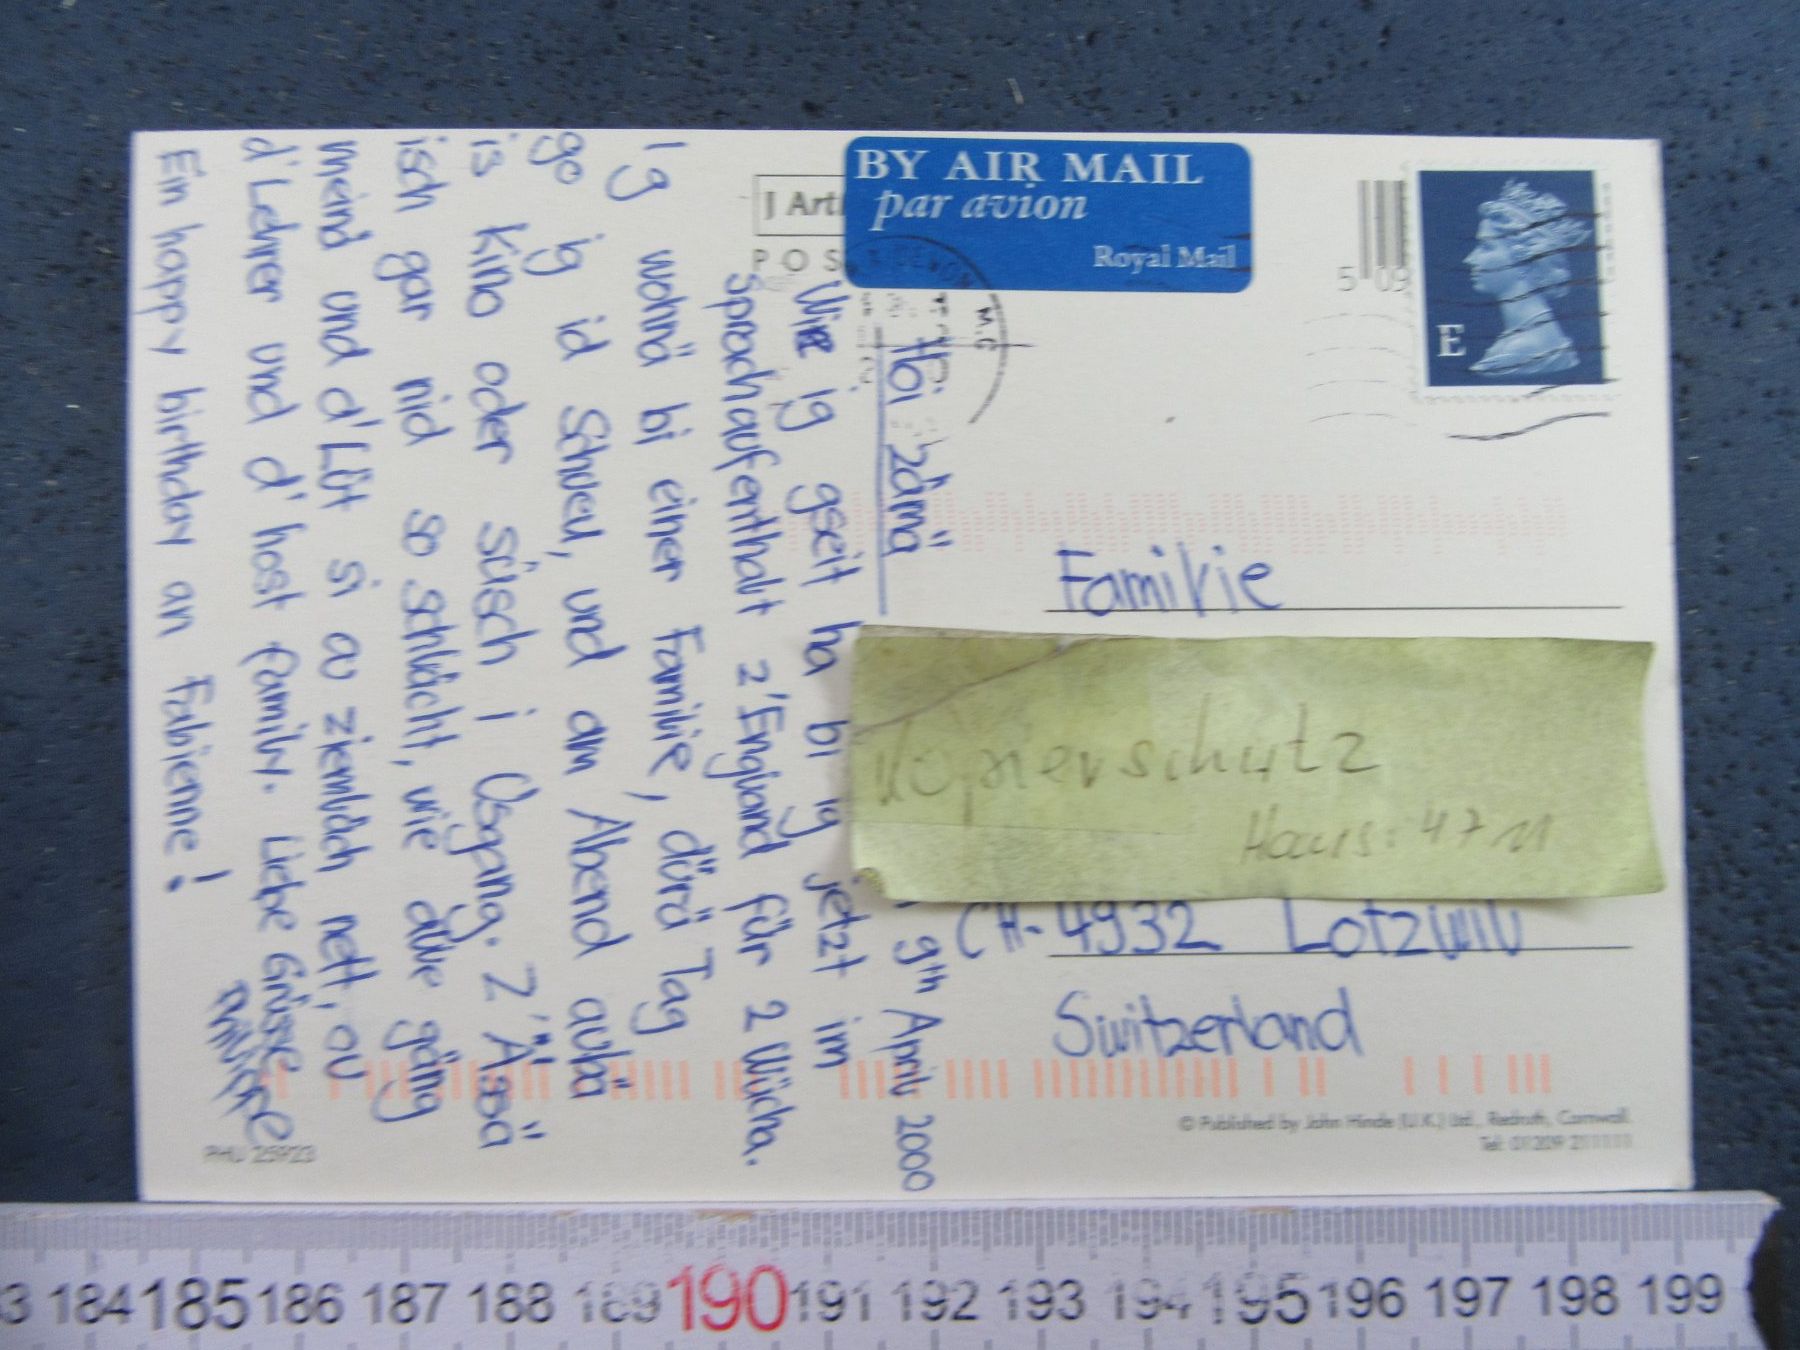 BY AIR MAIL
par avion
Royal Mail
J Art
POS
5 09
E
9th April 2000
Hoi zämä
Wie ig gseit ha bi ig jetzt im
Sprachaufenthalt z'England für 2 Wücha.
Ig wohnä bi einer Familie, dürä Tag
go ig id Schuel, und am Abend aubä
is Kino oder süsch i Usgang. Z'Ässä
isch gar nid so schlächt, wie aüwe gäng
meind und d'Lüt si ou ziemlich nett, ou
d'Lehrer und d'host family. Liebe Grüsse
Ein happy birthday an Fabienne!
Philippe
Familie
Kopierschutz
Haus: 4711
CH-4932 Lotzwil
Switzerland
© Published by John Hinde (U.K.) Ltd., Redruth, Cornwall.
Tel: 01209 211111
PHU 25923
184 185 186 187 188 189 190 191 192 193 194 195 196 197 198 199